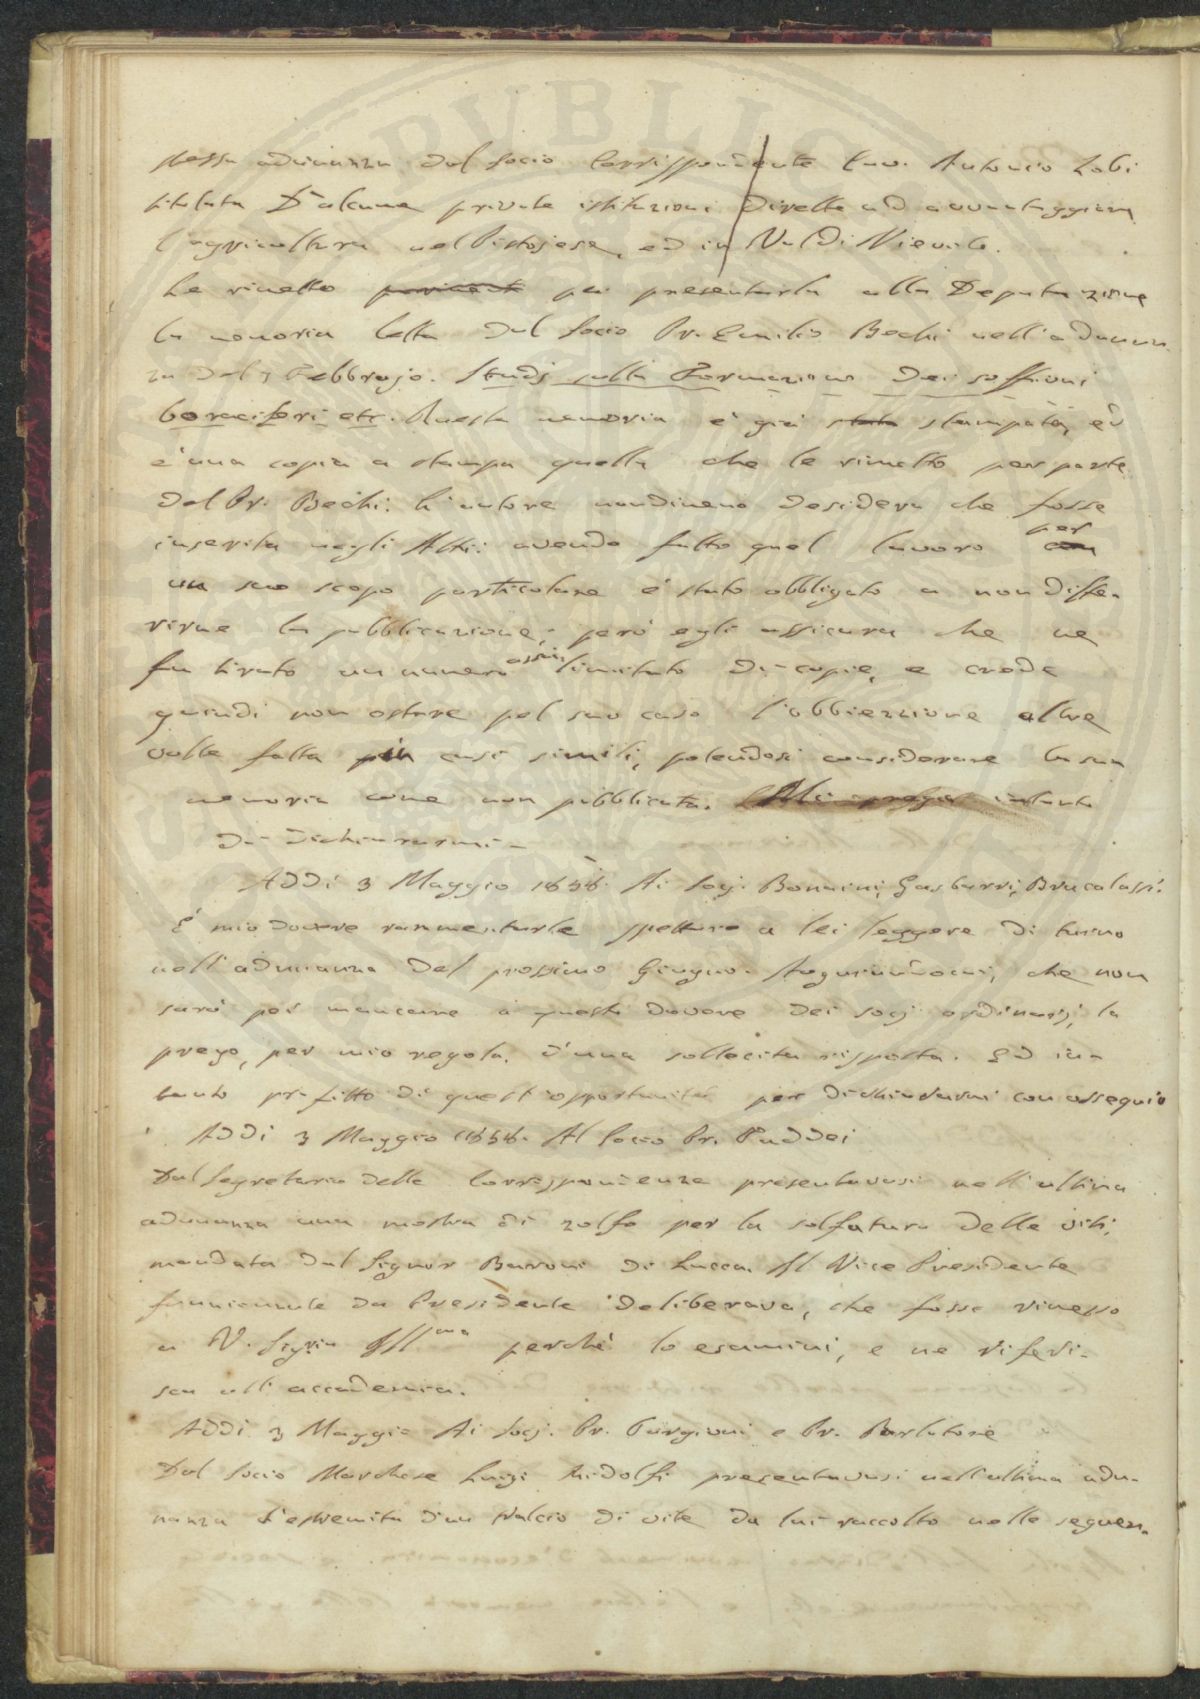 stessa adunanza dal socio Corrispondente Cav. Antonio Zobi
titolata D'alcune private istituzioni dirette ad avvantaggiare
l'agricoltura nel Pistojese, ed in Val di Nievole.
Le rimetto per presentarla alla Deputazione
la memoria letta dal socio Pr. Emilio Bechi nell'adunan-
za del 7 Febbrajo. Studj sulla Formazione dei soffioni
boraciferi etc. Questa memoria è già stata stampata, ed
è una copia a stampa quella che le rimetto per parte
del Pr. Bechi. L'autore nondimeno desidera che fosse
inserita negli Atti: avendo fatto quel lavoro per
un suo scopo particolare è stato obbligato a non diffe-
rirne la pubblicazione; però egli assicura che ne
fu tirato un numero assai limitato di copie, e crede
quindi non ostare pel suo caso l'obbiezione altre
volte fatta in casi simili, potendosi considerare la sua
memoria come non pubblicata. intanto
di dichiararmi -
Addì 3 Maggio 1858. Ai Socj. Bonaini, Gasbarri, Brucalassi.
È mio dovere rammentarle spettare a lei leggere di turno
nell'adunanza del prossimo Giugno. Augurandomi, che non
sarà per mancare a questo dovere dei socj ordinarj, la
prego, per mio regola, d'una sollecita risposta. Ed in-
tanto profitto di quest'opportunità per dichiararmi con ossequio
Addì 3 Maggio 1858. Al Socio Pr. Taddei
Dal Segretario delle Corrispondenze presentavasi nell'ultima
adunanza una mostra di zolfo per la solfatura delle viti,
mandata dal Signor Baroni di Lucca. Il Vice Presidente
funzionante da Presidente deliberava, che fosse rimesso
a V. Sigria Illma perchè lo esamini, e ne riferi-
sca all'accademia.
Addì 3 Maggio Ai Socj. Pr. Targioni e Pr. Parlatore
Dal Socio Marchese Luigi Ridolfi presentavasi nell'ultima adu-
nanza l'estremità d'un tralcio di vite da lui raccolto nelle seguen-